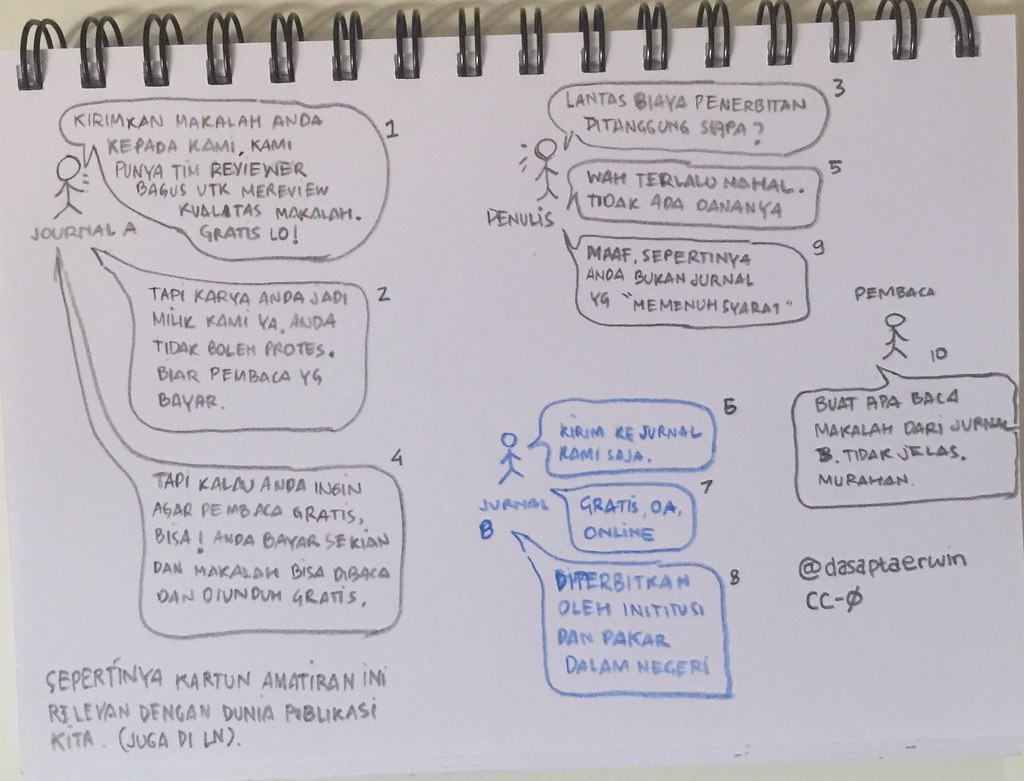 KIRIMKAN MAKALAH ANDA
KEPADA KAMI, KAMI
PUNYA TIM REVIEWER
BAGUS UTK MEREVIEW
KUALATAS MAKALAH.
GRATIS LO!
1
JOURNAL A
TAPI KARYA ANDA JADI
MILIK KAMI YA. ANDA
TIDAK BOLEH PROTES.
BIAR PEMBACA YG
BAYAR.
2
LANTAS BIAYA PENERBITAN
DITANGGUNG SIAPA?
3
PENULIS
TAPI KALAU ANDA INGIN
AGAR PEMBACA GRATIS,
BISA! ANDA BAYAR SEKIAN
DAN MAKALAH BISA DIBACA
DAN DIUNDUH GRATIS.
4
WAH TERLALU MAHAL.
TIDAK ADA DANANYA
5
KIRIM KE JURNAL
KAMI SAJA.
6
JURNAL
B
GRATIS, OA,
ONLINE
7
DITERBITKAN
OLEH INSTITUSI
DAN PAKAR
DALAM NEGERI
8
MAAF, SEPERTINYA
ANDA BUKAN JURNAL
YG "MEMENUHSYARAT"
9
PEMBACA
10
BUAT APA BACA
MAKALAH DARI JURNAL
B. TIDAK JELAS.
MURAHAN.
@dasaptaerwin
CC-0
SEPERTINYA KARTUN AMATIRAN INI
RELEVAN DENGAN DUNIA PUBLIKASI
KITA. (JUGA DI LN).